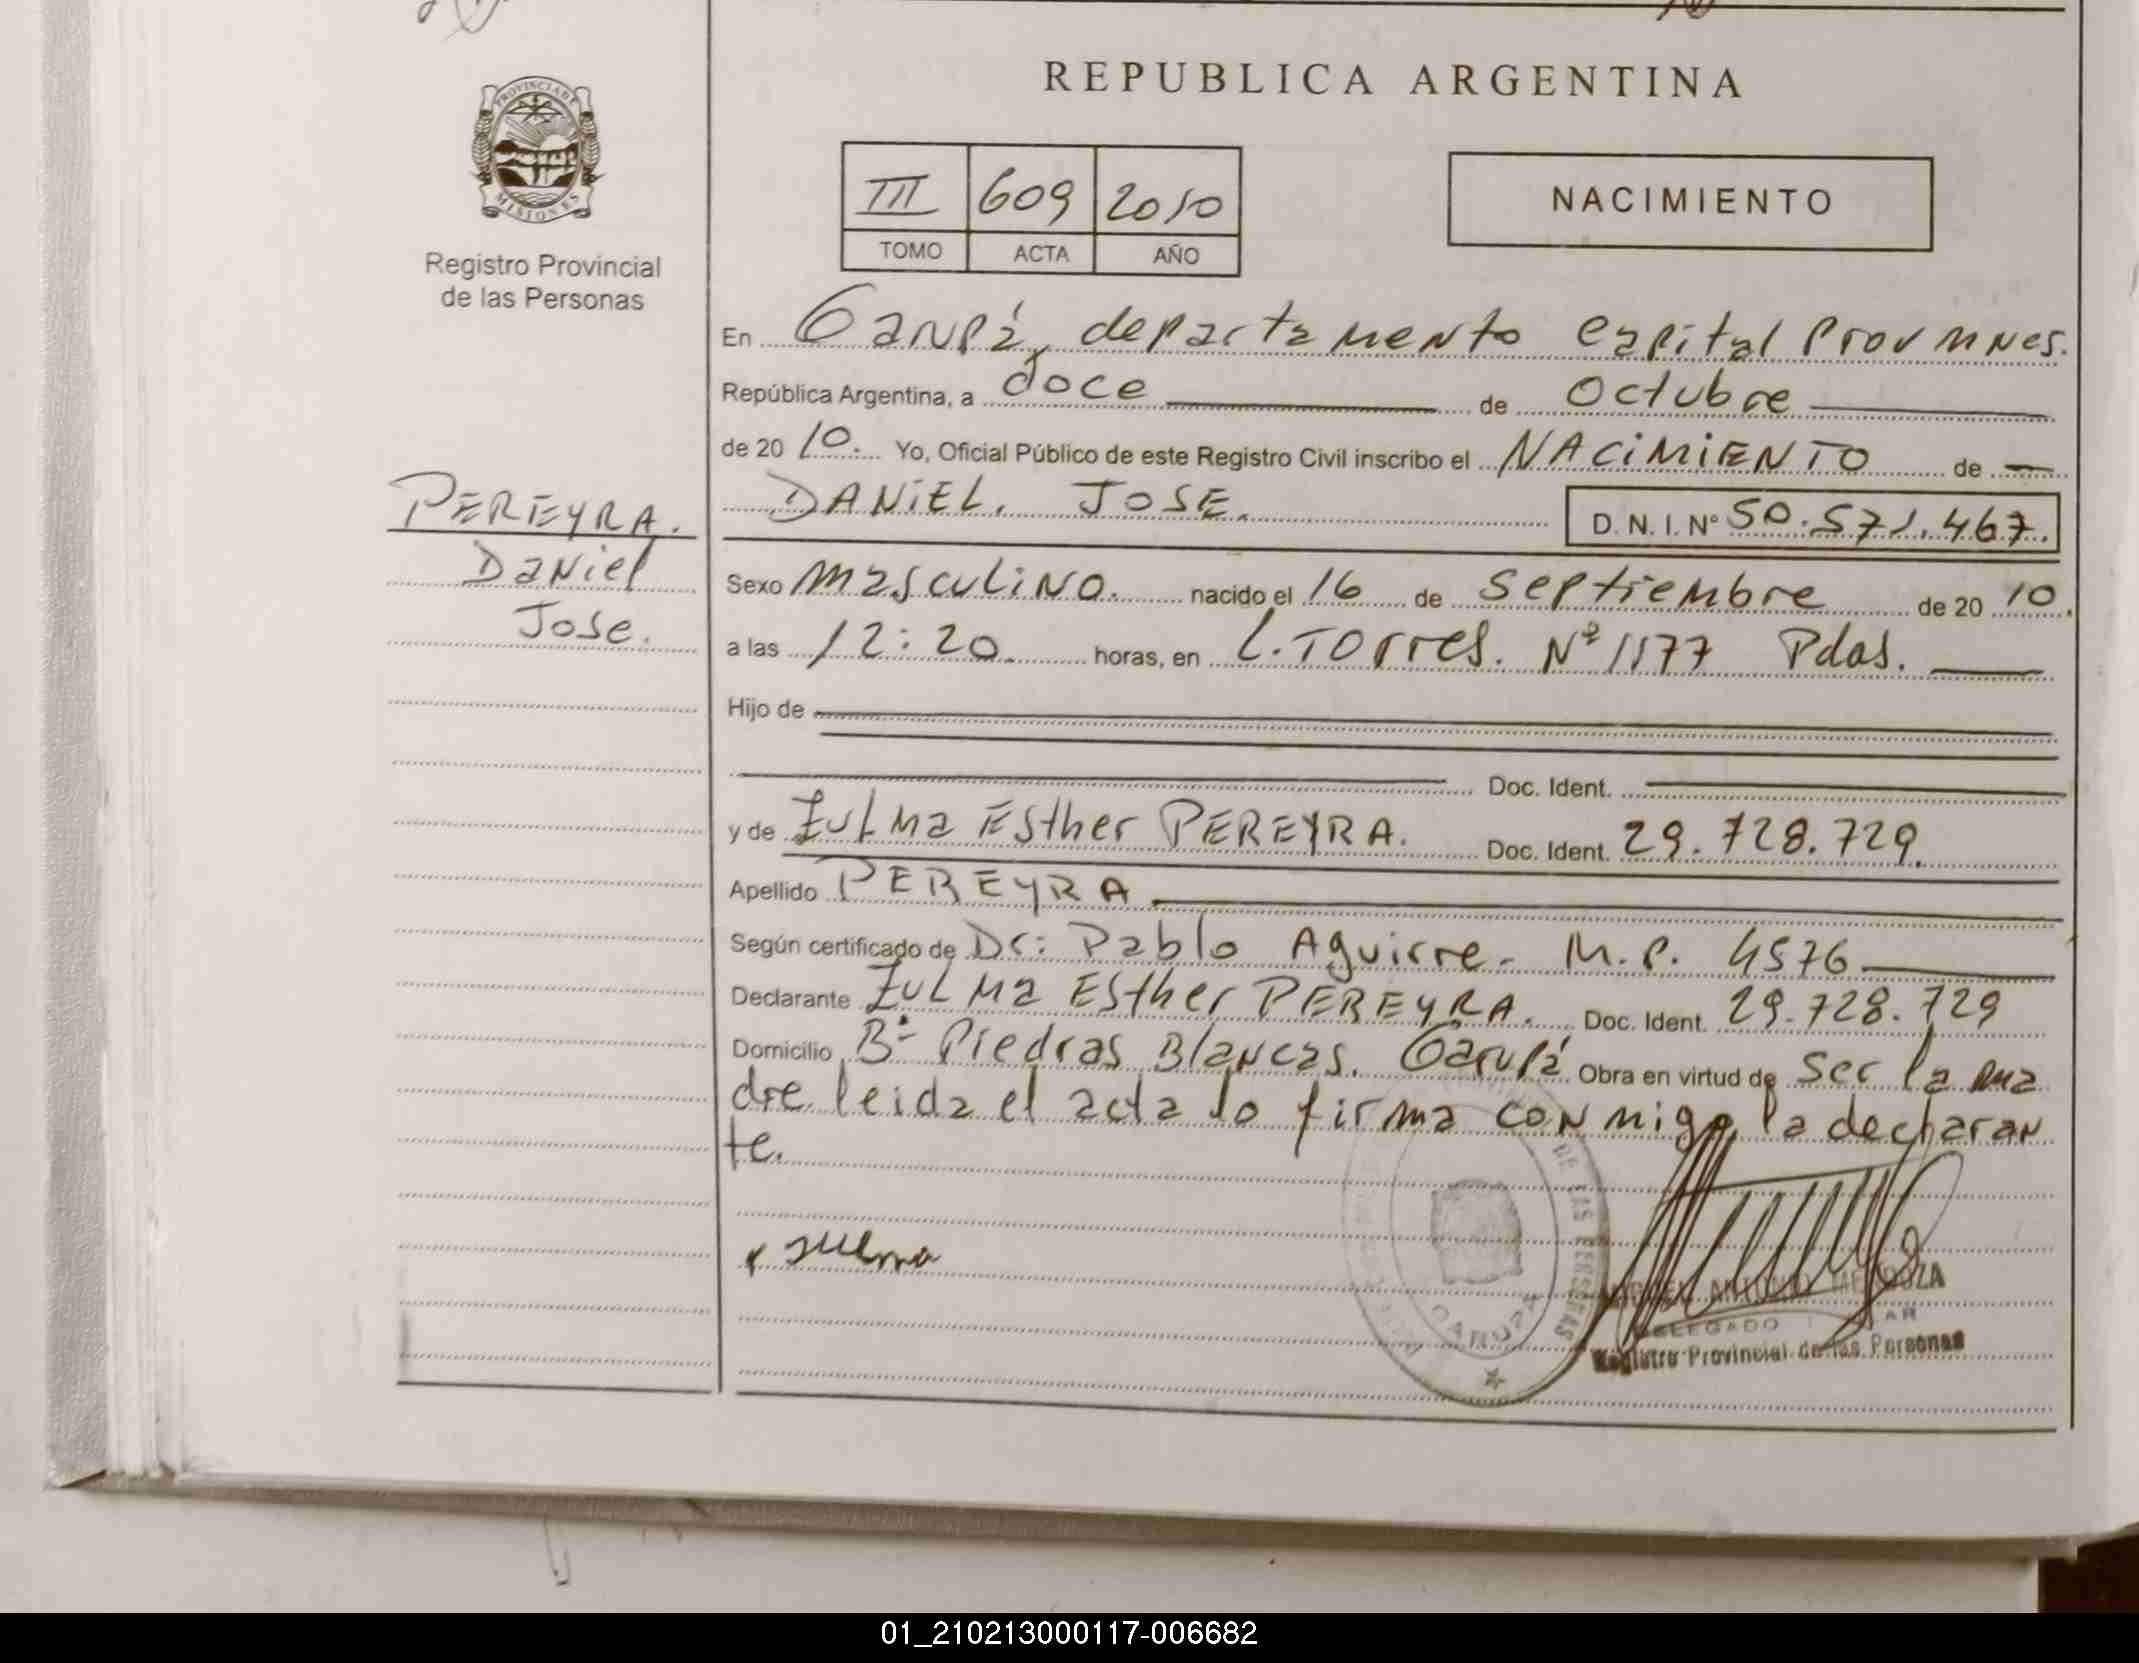 REPUBLICA ARGENTINA
PROVINCIA DE
MISIONES
Registro Provincial
de las Personas
III 609 2010
TOMO ACTA AÑO
NACIMIENTO
En Garupá, departamento Capital Prov Mnes.
República Argentina, a doce de Octubre
de 2010. Yo, Oficial Público de este Registro Civil inscribo el NACiMiENTO de
DANiEL. JOSE. D. N. I. Nº 50.571.467.
PEREYRA.
Daniel
Jose.
Sexo masculino. nacido el 16 de septiembre de 2010.
a las 12:20. horas, en L. Torres. Nº 1177 Pdas.
Hijo de
Doc. Ident.
y de Zulma Esther PEREYRA. Doc. Ident. 29.728.729.
Apellido PEREYRA
Según certificado de Dr: Pablo Aguirre. M.P. 4576
Declarante Zulma Esther PEREYRA. Doc. Ident. 29.728.729
Domicilio Bº Piedras Blancas. Garupá Obra en virtud de ser la ma
dre. leida el acta lo firma conmigo la declaran
te.
DE LAS PERSONAS
GARUPA
ANTONIO MENDOZA
DELEGADO
Registro Provincial de las Personas
01_210213000117-006682